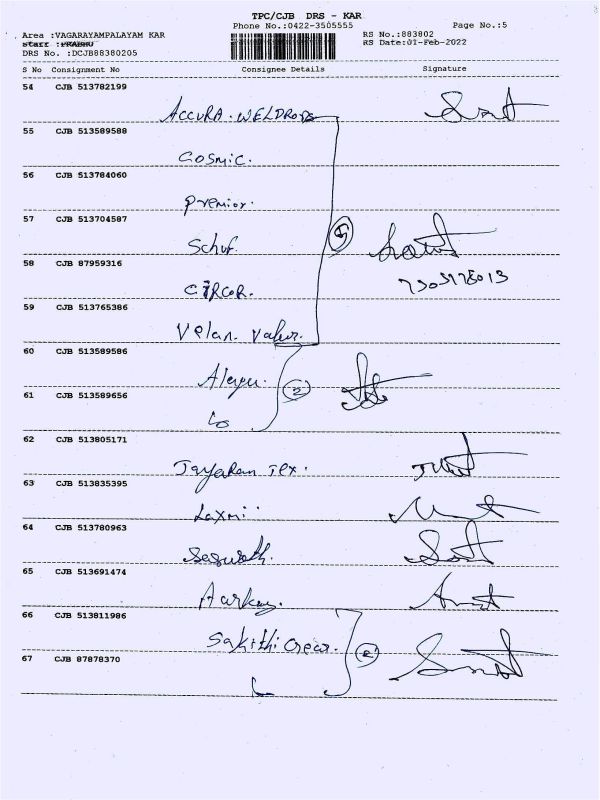 TPC/CJB DRS - KAR
Phone No.:0422-3505555 Page No.:5
Area :VAGARAYAMPALAYAM KAR RS No.:883802
Staff :PRABHU RS Date:01-Feb-2022
DRS No. :DCJB88380205
S No Consignment No Consignee Details Signature
54 CJB 513782199
ACCURA. WELDRODS
55 CJB 513589588
Cosmic.
56 CJB 513784060
Premior.
57 CJB 513704587
Schuf. 5
58 CJB 87959316
CIRCOR.
59 CJB 513765386
Velan. Valur.
60 CJB 513589586
2
61 CJB 513589656
62 CJB 513805171
Jayaram Tex.
63 CJB 513835395
Laxmi
64 CJB 513780963
65 CJB 513691474
Aarkay.
66 CJB 513811986
Sakthi Gear. 2
67 CJB 87878370